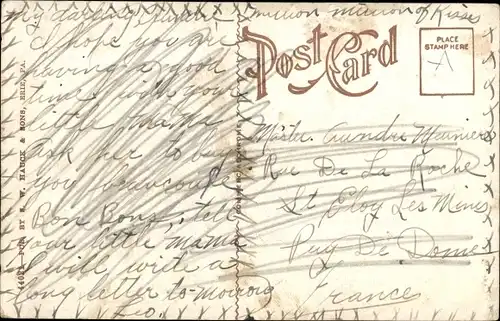 My darling Andre million million of Kisses
I hope you're
having a good
time with your
little mama
ask her to buy
you beaucoup
Bon Bons, tell
your little mama
I will write a
long letter to-morrow
Leo.
Post Card
PLACE
STAMP HERE
Master Aundre Meunier
Rue De La Roche
St Eloy Les Mines
Puy De Dome
France
PUB. BY E. W. HAUCK & SONS, ERIE, PA.